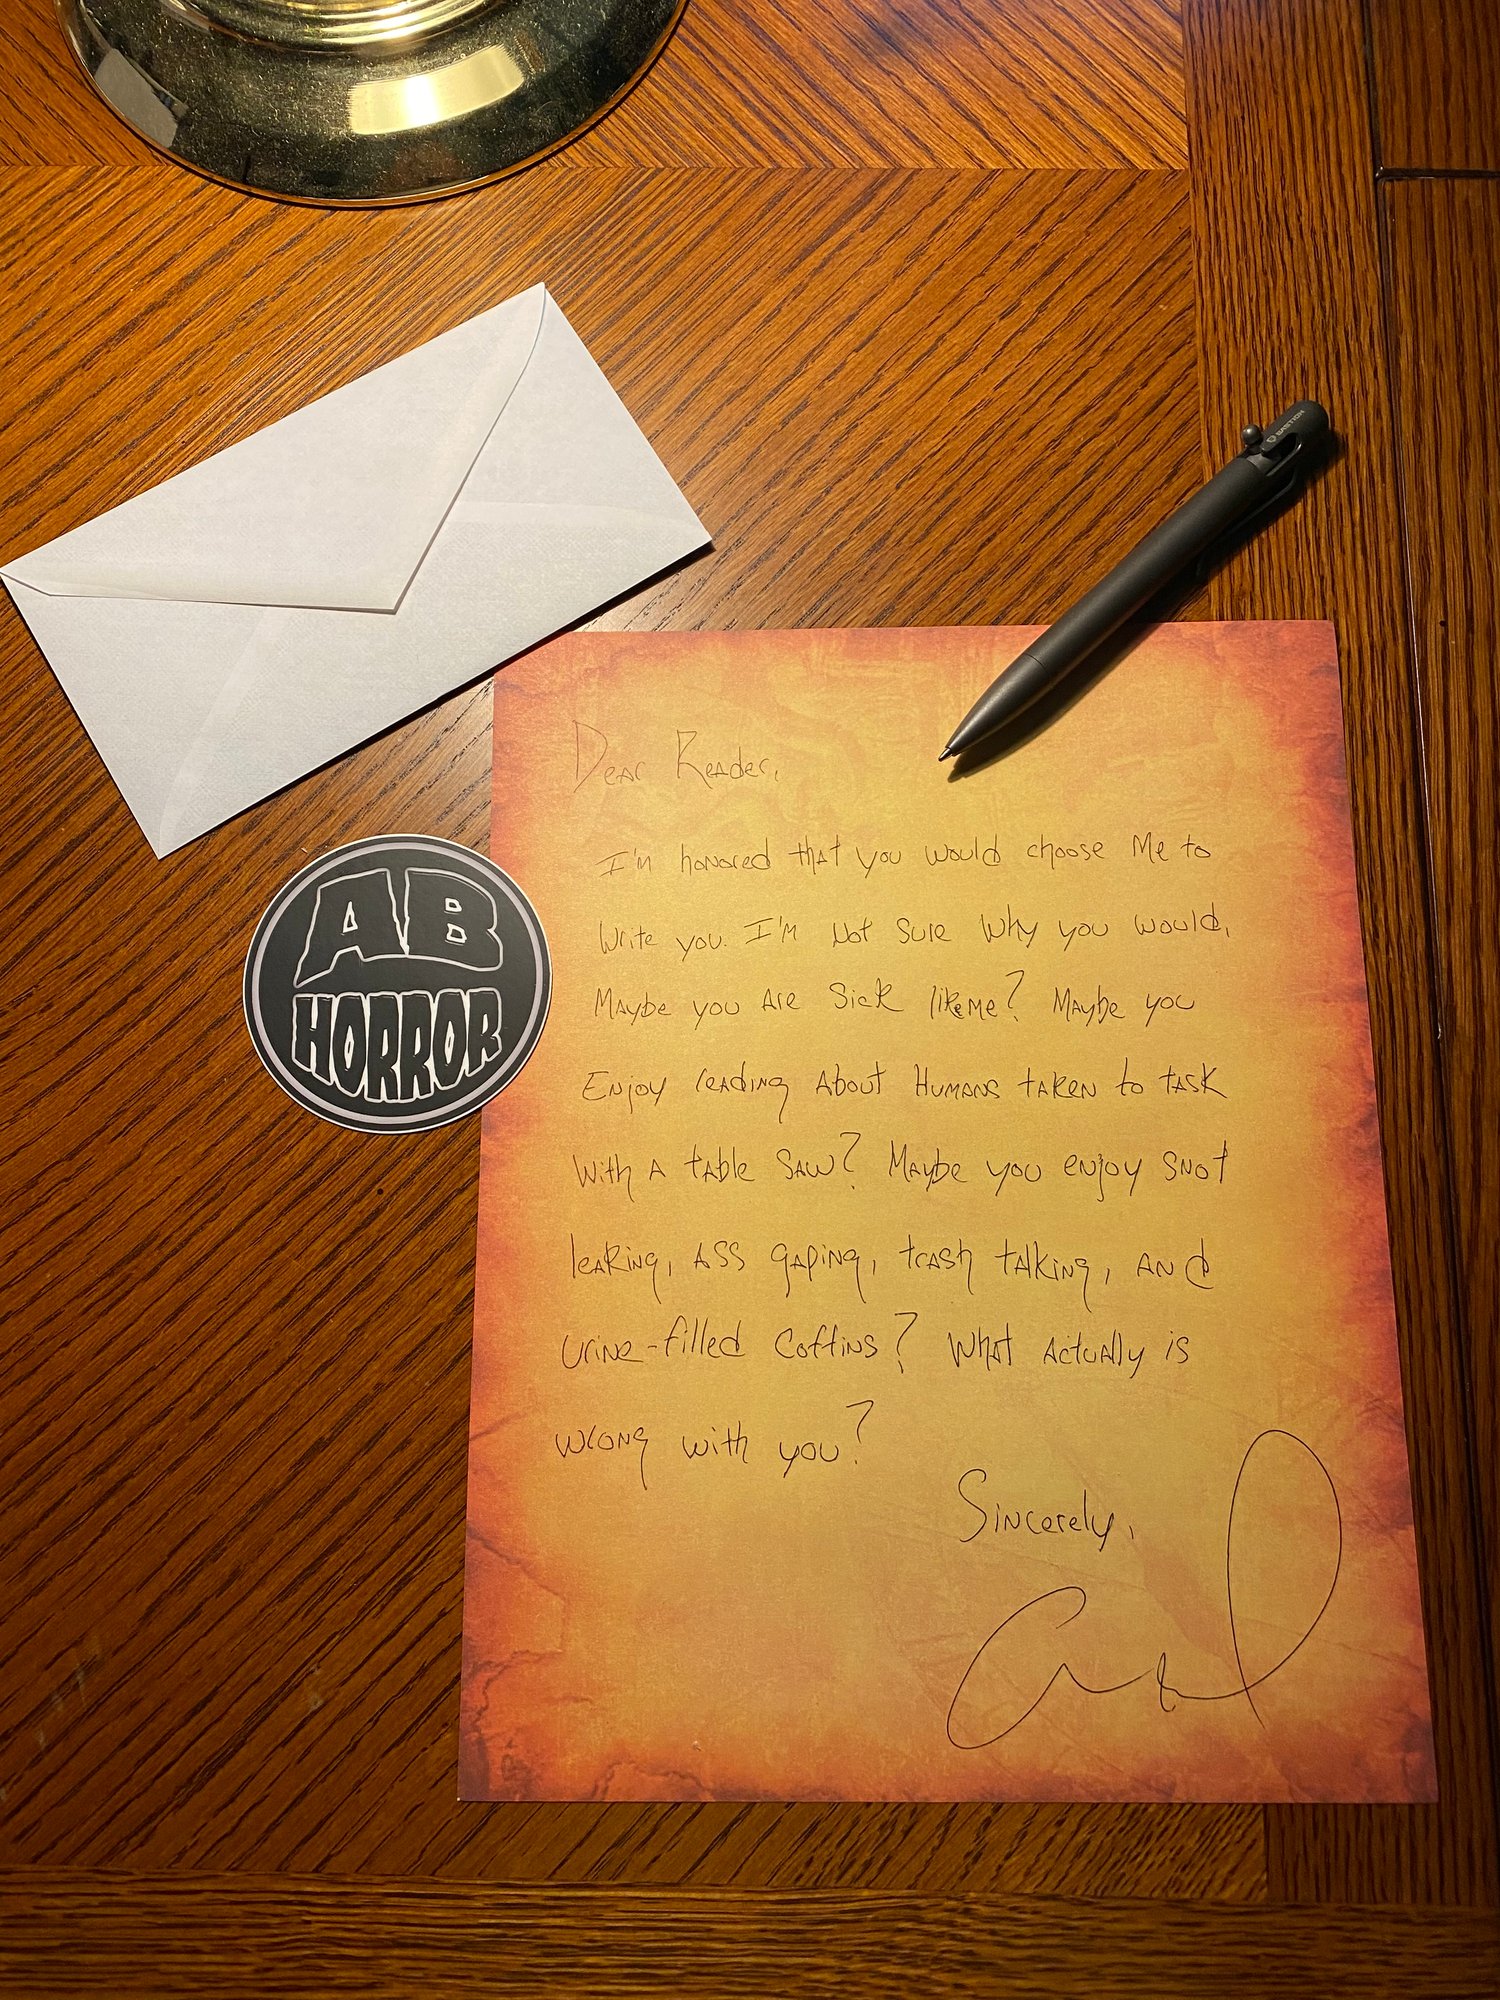 BASTION
AB
HORROR
Dear Reader,
I'm honored that you would choose me to
write you. I'm not sure why you would.
Maybe you are sick like me? Maybe you
Enjoy reading about Humans taken to task
with a table saw? Maybe you enjoy snot
leaking, ass gaping, trash talking, and
urine-filled coffins? What actually is
wrong with you?
Sincerely,